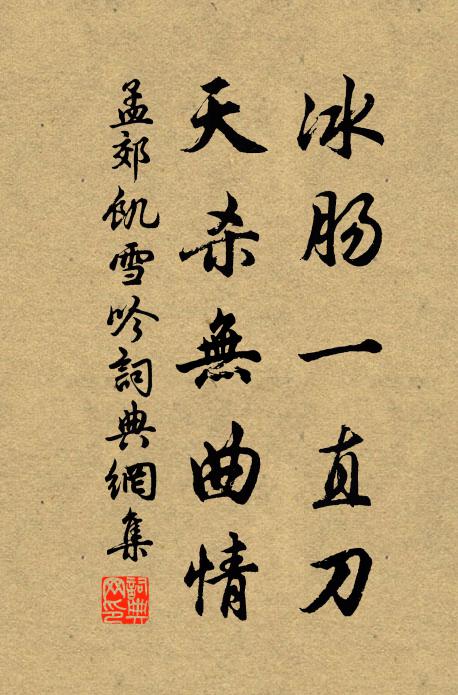 冰肠一直刀
天杀無曲情
孟郊飢雪吟詞典網集
詞典網印